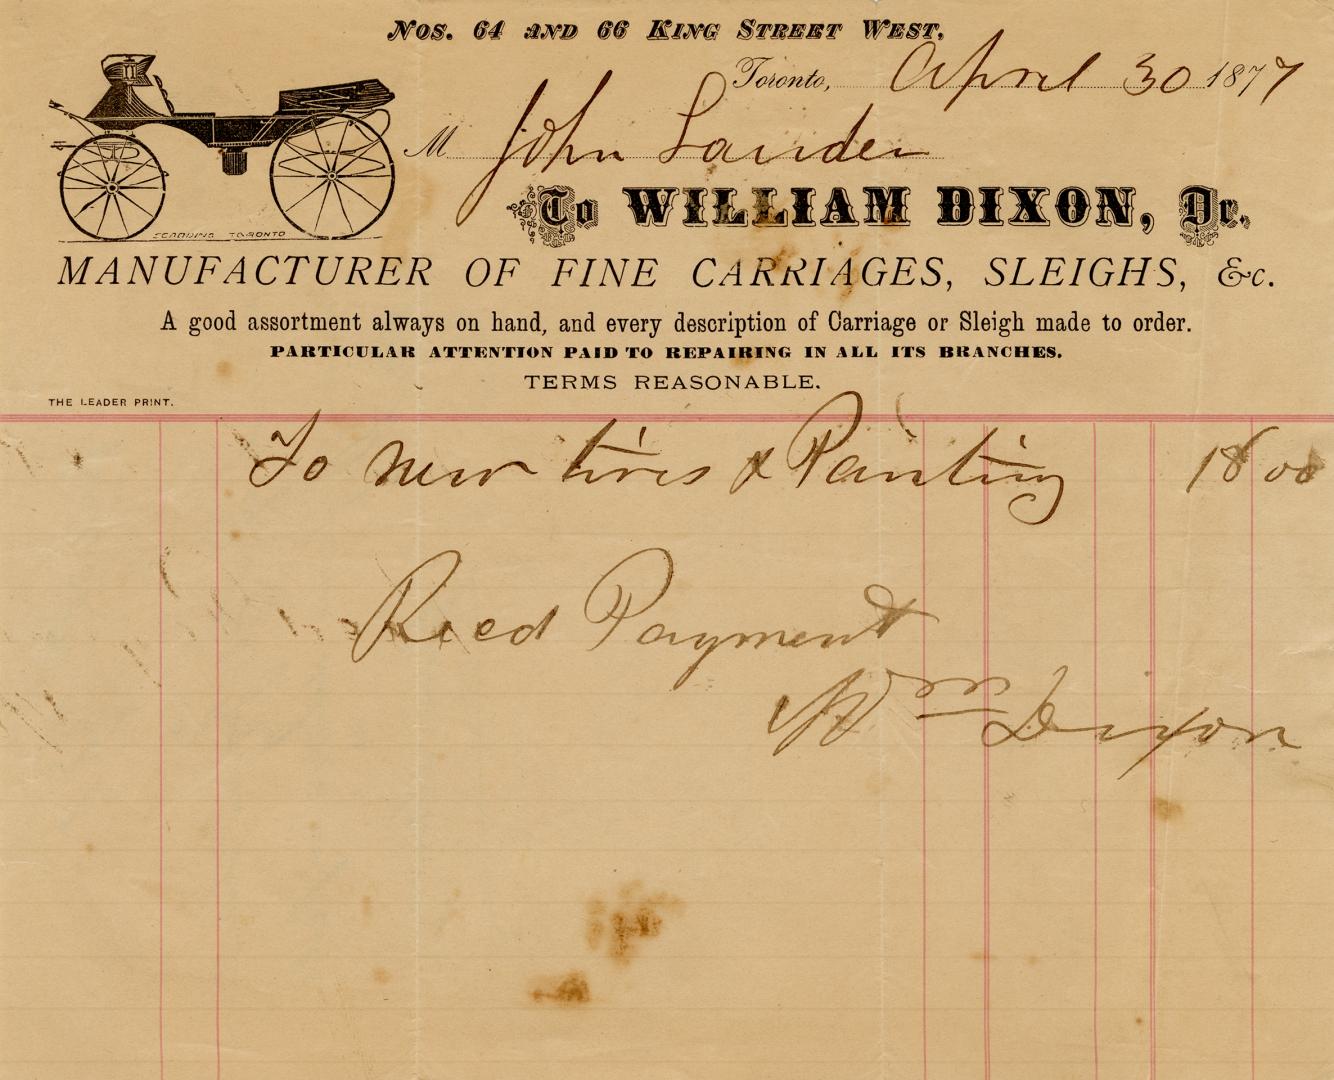 Nos. 64 and 66 King Street West,
Toronto, April 30 1877
M John Lauder
To WILLIAM DIXON, Dr.
SCADDING TORONTO
MANUFACTURER OF FINE CARRIAGES, SLEIGHS, &c.
A good assortment always on hand, and every description of Carriage or Sleigh made to order.
PARTICULAR ATTENTION PAID TO REPAIRING IN ALL ITS BRANCHES.
TERMS REASONABLE.
THE LEADER PRINT.
To new tires & Painting 18 00
Recd Payment
Wm Dixon